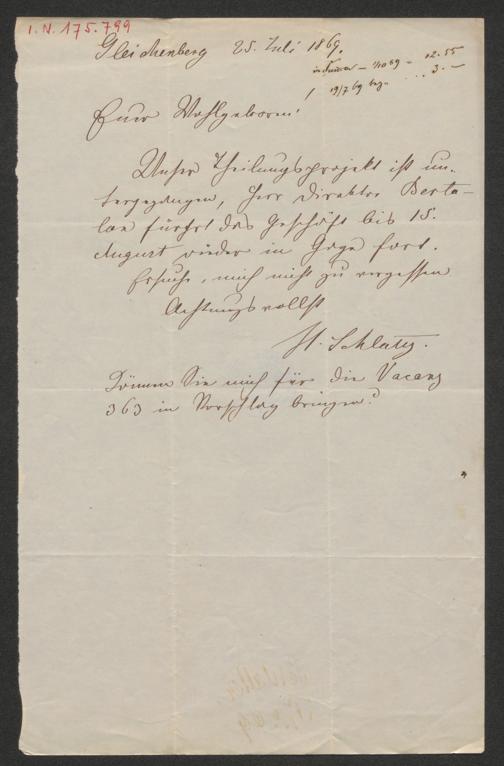 I.N. 175.799
Gleichenberg 25. Juli 1869.
12.55
19/7 69 3.—
Euer Wohlgeboren!
Unser Theilungsprojekt ist un-
tergegangen, Herr Direktor Berta-
lan führt das Geschäft bis 15.
August wieder in Gage fort.
Ersuche, mich nicht zu vergessen
Achtungsvollst
H. Schlatz.
Können Sie mich für die Vacanz
363 in Vorschlag bringen?